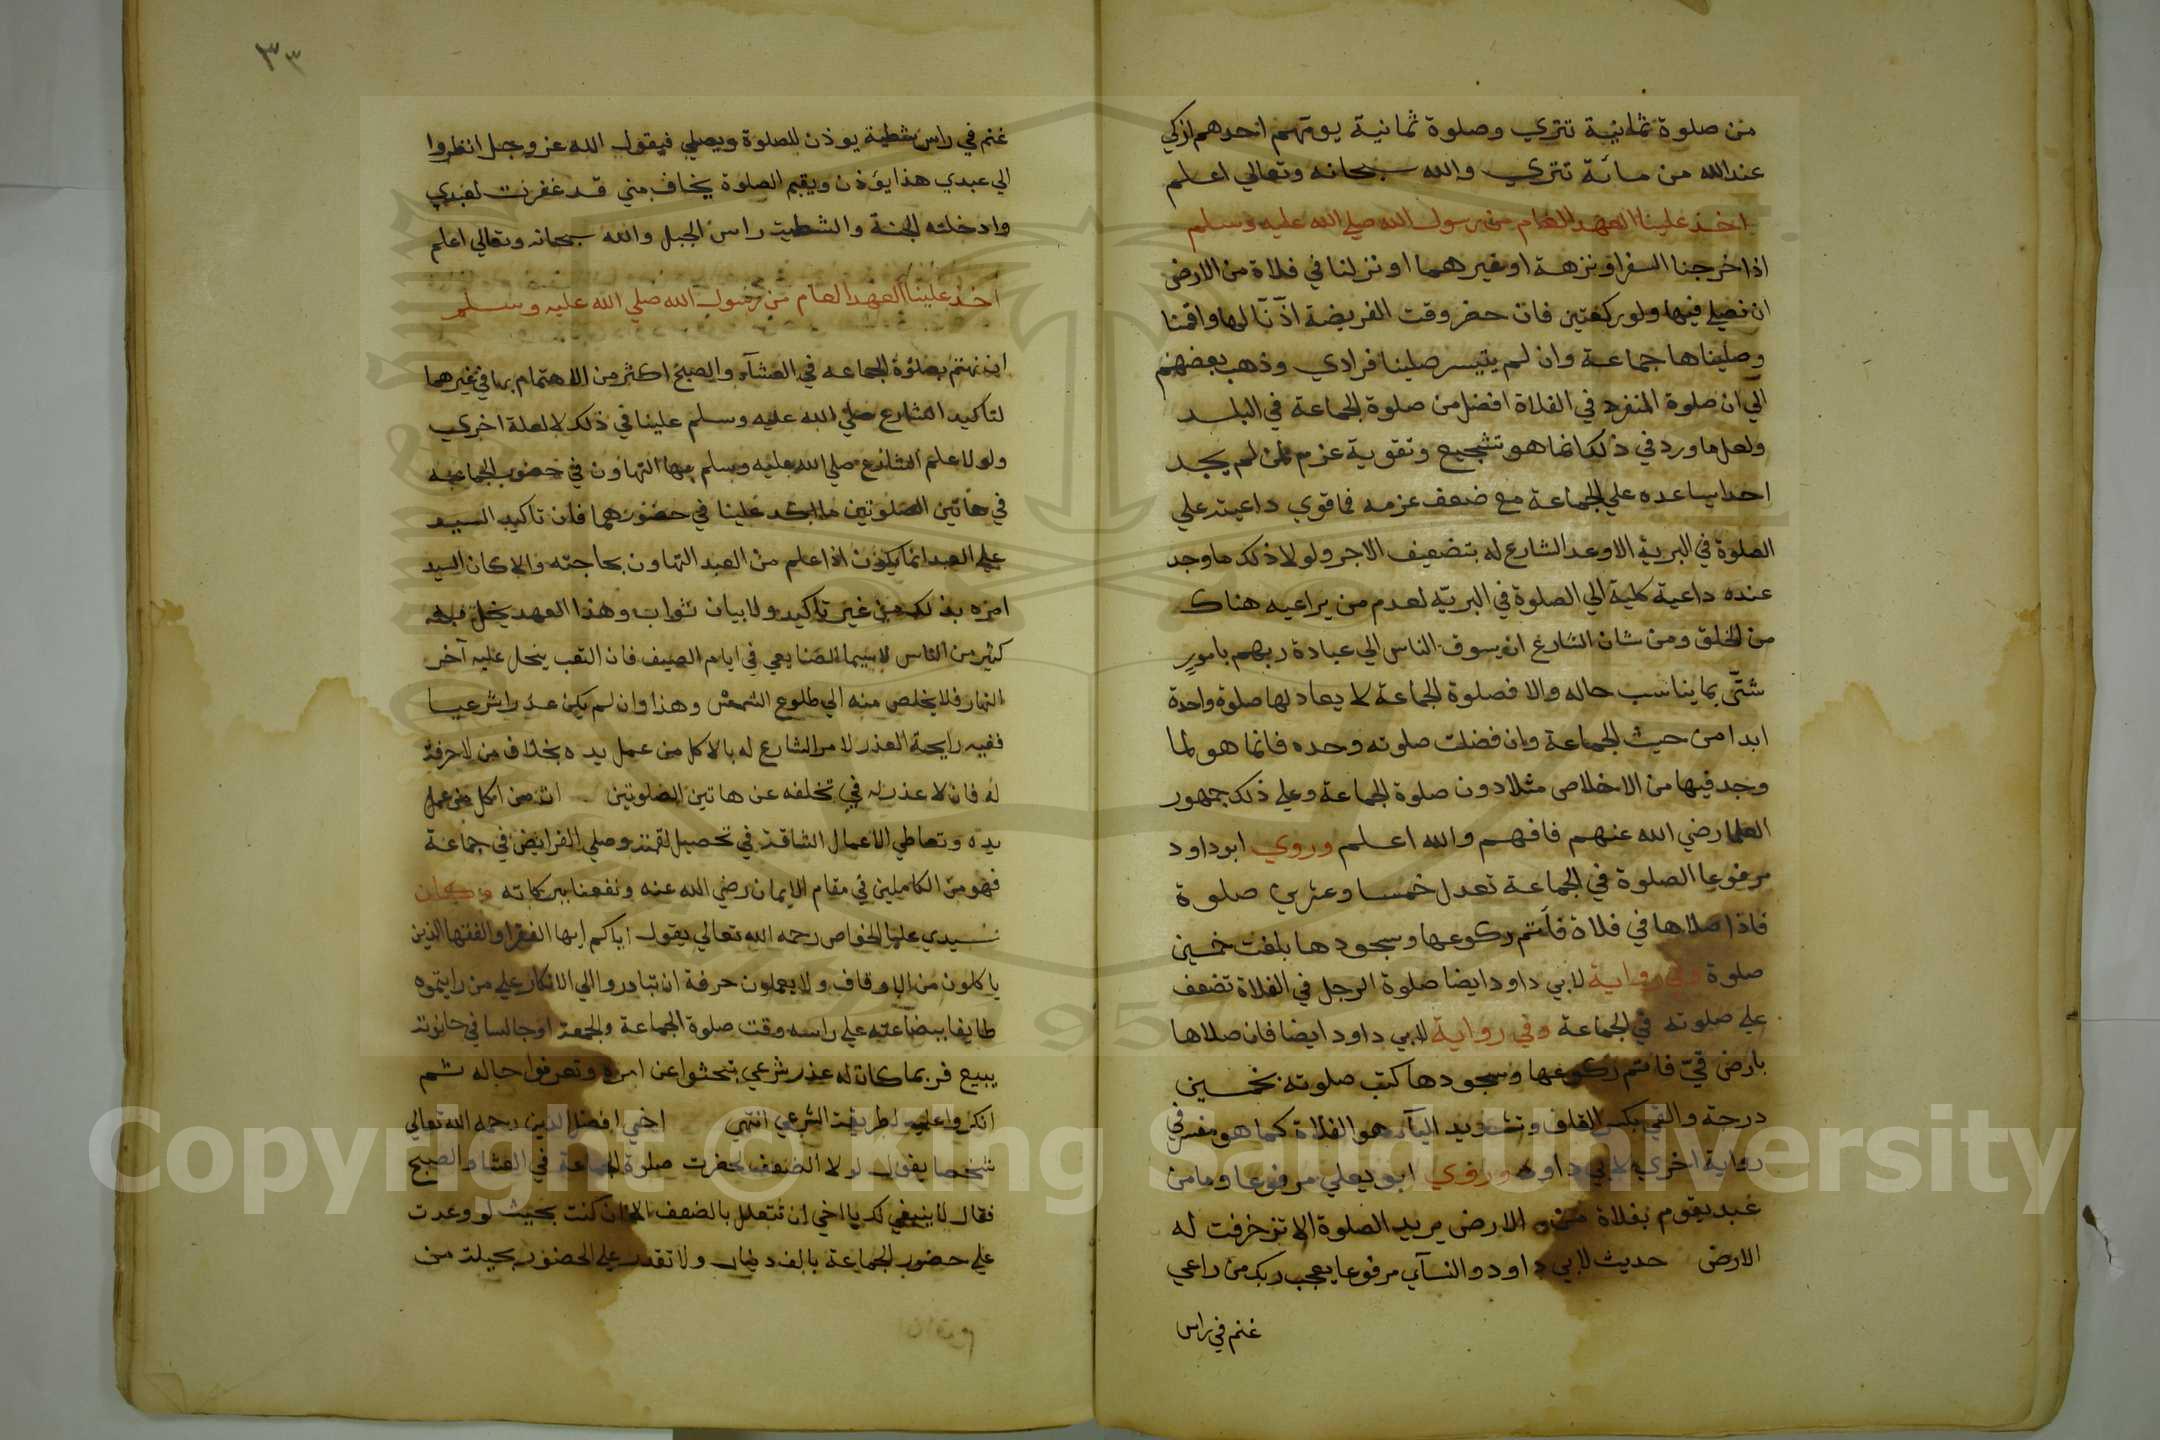 من صلوة ثمانية تتري وصلوة ثمانية يومهم احدهم ازكي
عند الله من مائة تتري والله سبحانه وتعالي اعلم
اخذ علينا العهد العام من رسول الله صلي الله عليه وسلم
اذا خرجنا السفر او نزهة او غيرهما او نزلنا في فلاة من الارض
ان نصلي فيها ولو ركعتين فان حضر وقت الفريضة اذنا لها واقمنا
وصليناها جماعة وان لم يتيسر صلينا فرادي وذهب بعضهم
الي ان صلوة المنفرد في الفلاة افضل من صلوة الجماعة في البلد
ولعل ما ورد في ذلك انما هو تشجيع وتقوية عزم لمن لم يجد
احدا يساعده علي الجماعة مع ضعف عزمه فما قوي داعيته علي
الصلوة في البرية الا وعد الشارع له بتضعيف الاجر ولولا ذلك ما وجد
عنده داعية كلية الي الصلوة في البرية لعدم من يراعيه هناك
من الخلق ومن شان الشارع ان يسوف الناس الي عبادة ربهم بامور
شتى بما يناسب حاله والا فصلوة الجماعة لا يعادلها صلوة واحدة
ابدا من حيث الجماعة وان فضلت صلوته وحده فانما هو لما
وجد فيها من الاخلاص مثلا دون صلوة الجماعة وعلي ذلك جمهور
العلما رضي الله عنهم فافهم والله اعلم وروي ابو داود
مرفوعا الصلوة في الجماعة تعدل خمسا وعشرين صلوة
فاذا صلاها في فلاة فاتم ركوعها وسجودها بلغت خمسين
صلوة وفي رواية لابي داود ايضا صلوة الرجل في الفلاة تضعف
علي صلوته في الجماعة وفي رواية لابي داود ايضا فان صلاها
بارض قي فاتم ركوعها وسجودها كتب صلوته بخمسين
درجة والقي بكسر القاف وتشديد اليآء هو الفلاة كما هو مفسر في
رواية اخري لابي داود وروي ابو يعلي مرفوعا وما من
عبد يقوم بفلاة من الارض يريد الصلوة الا تزخرفت له
الارض حديث لابي داود والنسآي مرفوعا يعجب ربك من راعي
غنم في راس
٣٣
غنم في راس شظية يوذن للصلوة ويصلي فيقول الله عز وجل انظروا
الي عبدي هذا يؤذن ويقيم الصلوة يخاف مني قد غفرت لعبدي
وادخلته الجنة والشظية راس الجبل والله سبحانه وتعالي اعلم
اخذ علينا العهد العام من رسول الله صلي الله عليه وسلم
ان نهتم بصلوة الجماعه في العشآء والصبح اكثر من الاهتمام بها في غيرهما
لتاكيد الشارع صلي الله عليه وسلم علينا في ذلك لا لعلة اخري
ولولا علم الشارع صلي الله عليه وسلم بها التهاون في حضور الجماعة
في هاتين الصلوتين ما اكد علينا في حضورهما فان تاكيد السيد
علي العبد انما يكون اذا علم من العبد التهاون بحاجته والا كان السيد
امره بذلك من غير تاكيد ولا بيان ثواب وهذا العهد يخل به
كثير من الناس لا سيما الصنايعي في ايام الصيف فان التعب ينحل عليه آخر
النهار فلا يخلص منه الي طلوع الشمس وهذا وان لم يكن عذرا شرعيا
ففيه رايحة العذر لامر الشارع له بالاكل من عمل يده بخلاف من لا حرفة
له فانه لا عذر له في تخلفه عن هاتين الصلوتين ان من اكل من عمل
يده وتعاطي الاعمال الشاقة في تحصيل لقمته وصلي الفرايض في جماعة
فهو من الكاملين في مقام الايمان رضي الله عنه ونفعنا ببركاته وكان
سيدي عليا الخواص رحمه الله تعالي يقول اياكم ايها الفقرا والفقها الذين
ياكلون من الاوقاف ولا يعملون حرفة ان تبادروا الي الانكار علي من رايتموه
طايفا ببضاعته علي راسه وقت صلوة الجماعة والجمعة او جالسا في حانوته
يبيع فربما كان له عذر شرعي بتبحثوا عن امره وتعرفوا حاله ثم
انكروا عليه لطريقت الشرعي انتهي اخي افضل الدين رحمه الله تعالي
شخصا يقول لولا الضعف لحضرت صلوة الجماعة في العشا والصبح
فقال لا ينبغي لك يا اخي ان تتعلل بالضعف الا ان كنت بحيث لو وعدت
علي حضور الجماعة بالف دينار ولا تقدر علي الحضور بحيلة من
Copyright © King Saud University
1957